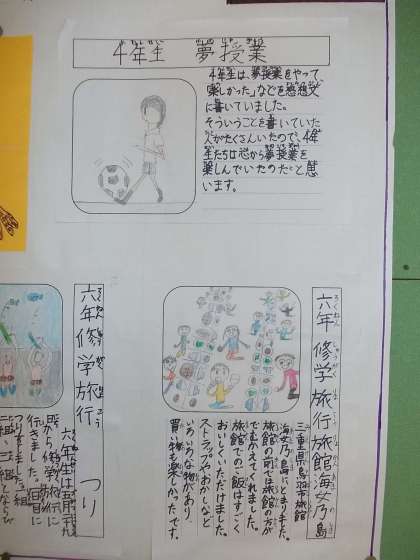 4年生 夢授業
4年生は、夢授業をやって
楽しかった」などを感想文
に書いていました。
そういうことを書いていた
人がたくさんいたので、4年
生たちは心から夢授業を
楽しんでいたのだと思
います。
六年 修学旅行 旅館海女乃島
三重県鳥羽市旅館
海女乃島にとまりました。
旅館の前では旅館の方が
でむかえてくれました。
旅館でのご飯はすごく
おいしくいただけました。
ストラップやおかしなど
いろいろな物があり、
買い物も楽しかったです。
六年 修学旅行 つり
六年生は五月
から修学旅行に
行きました。一日目に
つりをしました。